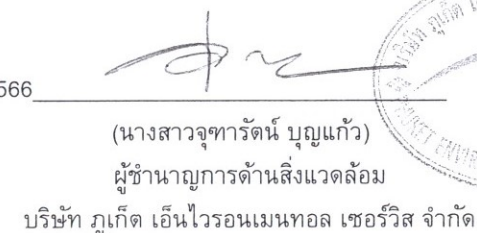 566
(นางสาวจุฑารัตน์ บุญแก้ว)
ผู้ชำนาญการด้านสิ่งแวดล้อม
บริษัท ภูเก็ต เอ็นไวรอนเมนทอล เซอร์วิส จำกัด
บริษัท ภูเก็ต